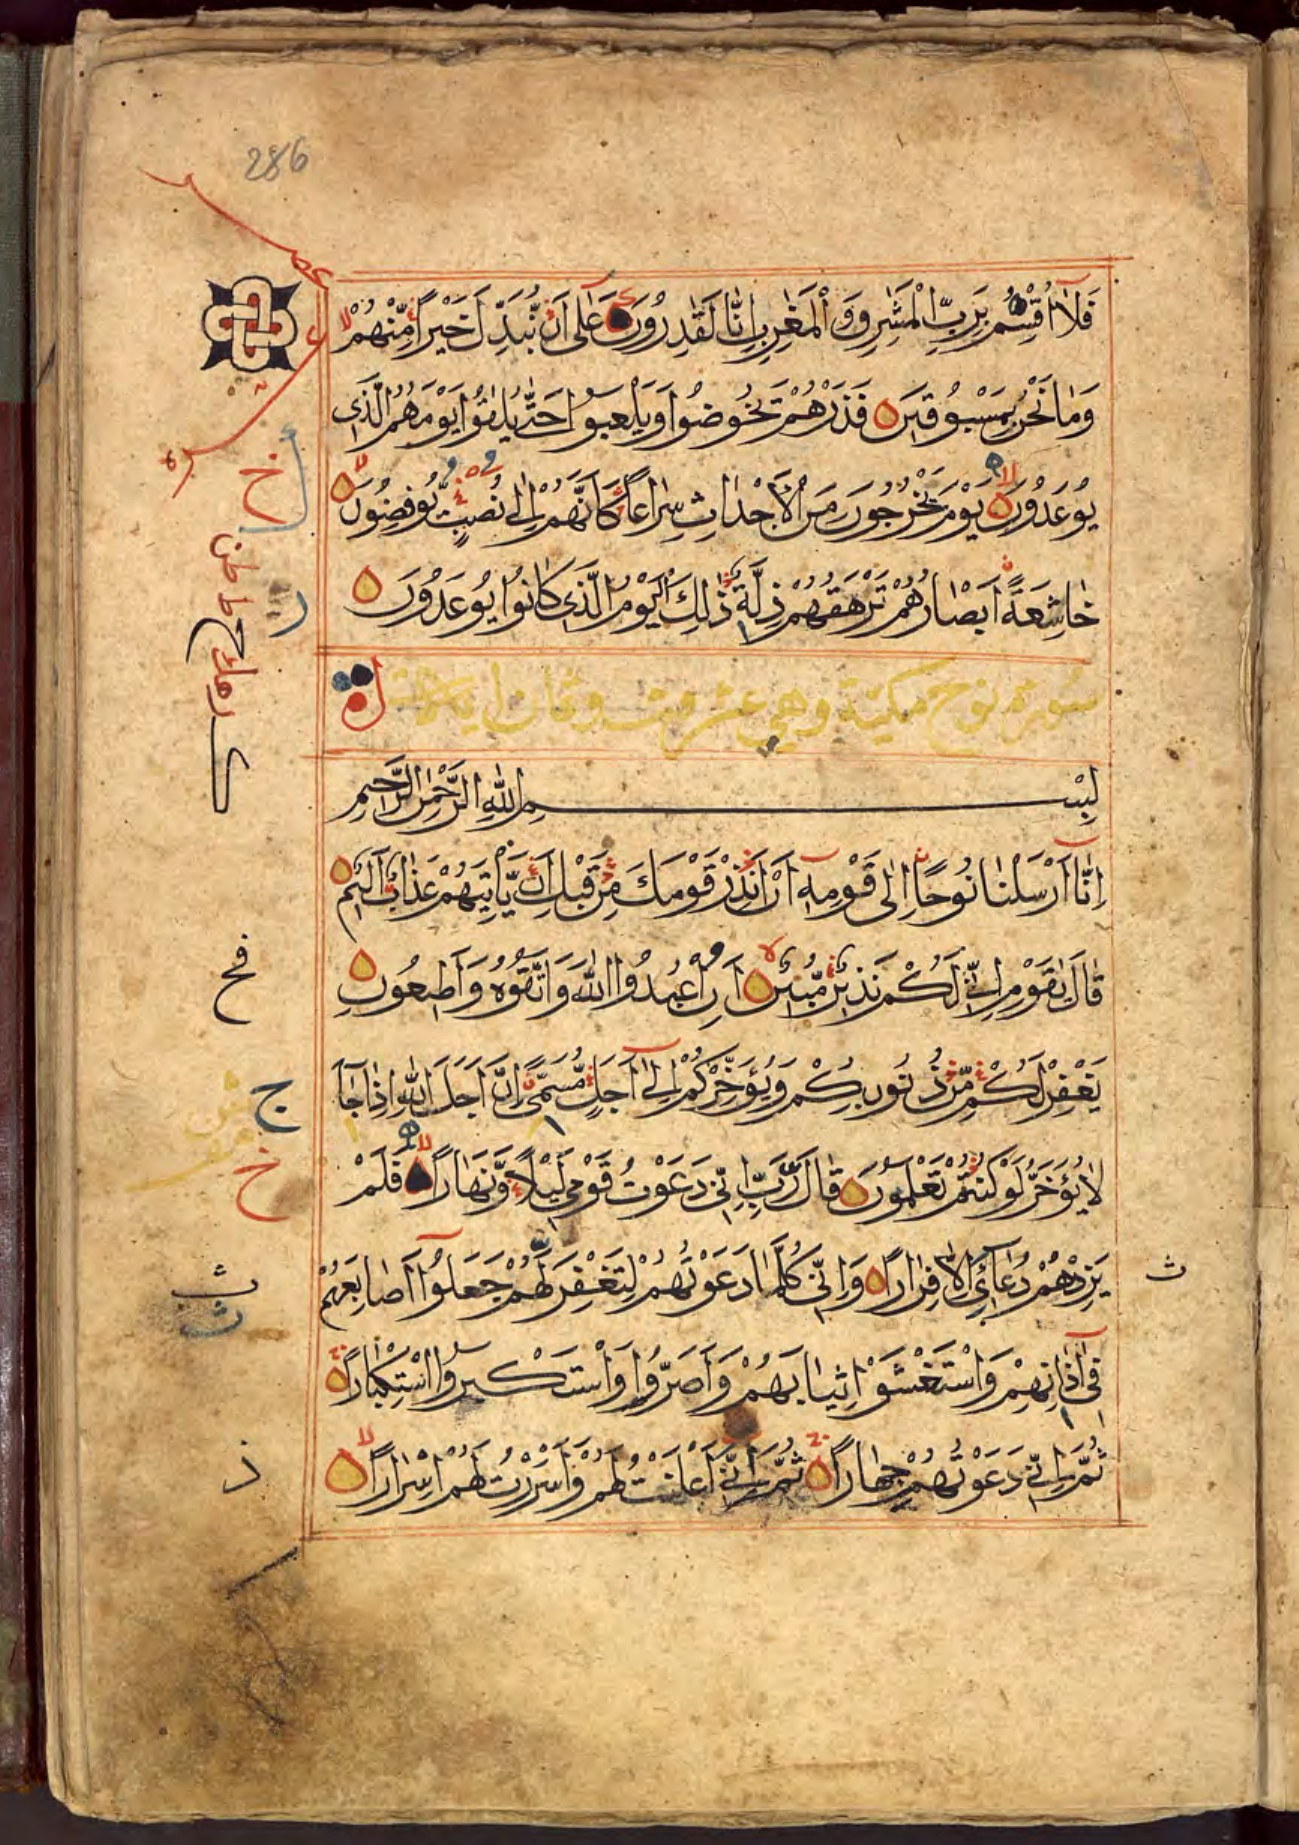 286
فَلَا أُقْسِمُ بِرَبِّ الْمَشٰرِقِ وَالْمَغٰرِبِ اِنَّا لَقٰدِرُونَ عَلٰى اَنْ نُّبَدِّلَ خَيْرًا مِّنْهُمْ
وَمَا نَحْنُ بِمَسْبُوقِيْنَ فَذَرْهُمْ يَخُوضُوا وَيَلْعَبُوا حَتّٰى يُلٰقُوا يَوْمَهُمُ الَّذِى
يُوعَدُونَ يَوْمَ يَخْرُجُونَ مِنَ الْاَجْدَاثِ سِرَاعًا كَاَنَّهُمْ اِلٰى نُصُبٍ يُّوفِضُونَ
خَاشِعَةً اَبْصَارُهُمْ تَرْهَقُهُمْ ذِلَّةٌ ذٰلِكَ الْيَوْمُ الَّذِى كَانُوا يُوعَدُونَ
سورة نوح مكية وهي عشرون وثمان ايات
بِسْمِ اللّٰهِ الرَّحْمٰنِ الرَّحِيْمِ
اِنَّا اَرْسَلْنَا نُوحًا اِلٰى قَوْمِهٖ اَنْ اَنْذِرْ قَوْمَكَ مِنْ قَبْلِ اَنْ يَّاْتِيَهُمْ عَذَابٌ اَلِيْمٌ
قَالَ يٰقَوْمِ اِنِّى لَكُمْ نَذِيْرٌ مُّبِيْنٌ اَنِ اعْبُدُوا اللّٰهَ وَاتَّقُوهُ وَاَطِيْعُونِ
يَغْفِرْ لَكُمْ مِّنْ ذُنُوبِكُمْ وَيُؤَخِّرْكُمْ اِلٰى اَجَلٍ مُّسَمًّى اِنَّ اَجَلَ اللّٰهِ اِذَا جَآءَ
لَا يُؤَخَّرُ لَوْ كُنْتُمْ تَعْلَمُونَ قَالَ رَبِّ اِنِّى دَعَوْتُ قَوْمِى لَيْلًا وَّنَهَارًا فَلَمْ
يَزِدْهُمْ دُعَآئِى اِلَّا فِرَارًا وَاِنِّى كُلَّمَا دَعَوْتُهُمْ لِتَغْفِرَ لَهُمْ جَعَلُوا اَصَابِعَهُمْ
فِى اٰذَانِهِمْ وَاسْتَغْشَوْا ثِيَابَهُمْ وَاَصَرُّوا وَاسْتَكْبَرُوا اسْتِكْبَارًا
ثُمَّ اِنِّى دَعَوْتُهُمْ جِهَارًا ثُمَّ اِنِّى اَعْلَنْتُ لَهُمْ وَاَسْرَرْتُ لَهُمْ اِسْرَارًا